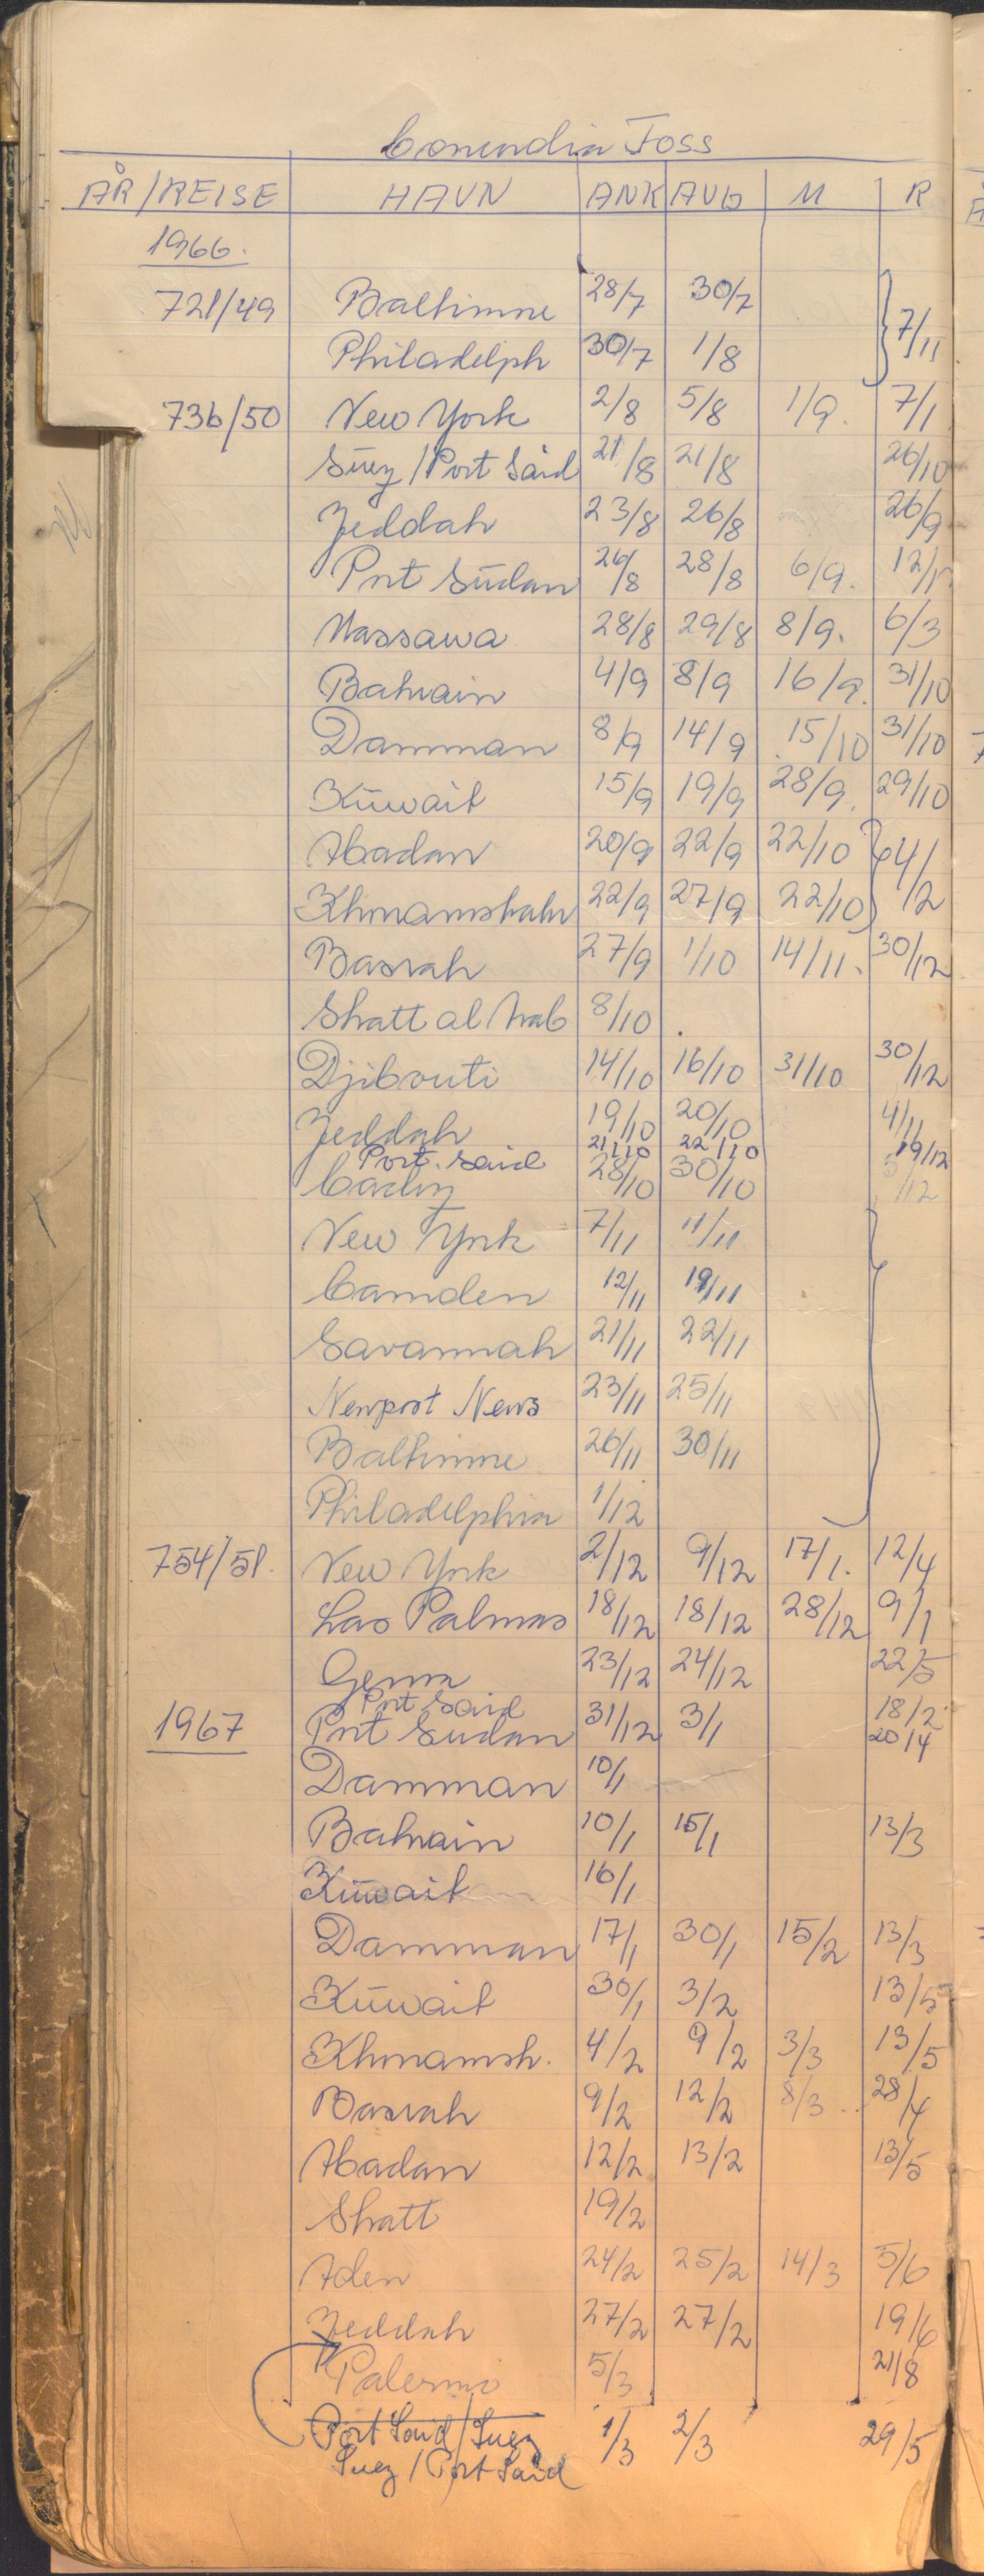 Concordia Foss
ÅR/REISE HAVN ANK AVG M R
1966.
721/49 Baltimore 28/7 30/7 7/11
Philadelph 30/7 1/8
736/50 New York 2/8 5/8 1/9. 7/1
Suez/Port Said 21/8 21/8 26/10
Jeddah 23/8 26/8 26/9
Port Sudan 26/8 28/8 6/9. 12/11
Massawa 28/8 29/8 8/9. 6/3
Bahrain 4/9 8/9 16/9. 31/10
Damman 8/9 14/9 15/10 31/10
Kuwait 15/9 19/9 28/9. 29/10
Abadan 20/9 22/9 22/10 4/12
Khoramshahr 22/9 27/9 22/10
Basrah 27/9 1/10 14/11. 30/12
Shatt al Arab 8/10
Djibouti 14/10 16/10 31/10 30/12
Jeddah 19/10 20/10 4/11
Port Said 21/10 22/10 19/12
Cadiz 28/10 30/10 5/12
New York 7/11 11/11
Camden 12/11 19/11
Savannah 21/11 22/11
Newport News 23/11 25/11
Baltimore 26/11 30/11
Philadelphia 1/12
754/51. New York 2/12 9/12 17/1. 12/4
Las Palmas 18/12 18/12 28/12 9/1
Genoa 23/12 24/12 22/5
Port Said 18/2
1967 Port Sudan 31/12 3/1 20/4
Damman 10/1
Bahrain 10/1 15/1 13/3
Kuwait 16/1
Damman 17/1 30/1 15/2 13/3
Kuwait 30/1 3/2 13/5
Khoramsh. 4/2 9/2 3/3 13/5
Basrah 9/2 12/2 8/3 28/4
Abadan 12/2 13/2 13/5
Shatt 19/2
Aden 24/2 25/2 14/3 5/6
Jeddah 27/2 27/2 19/6
Palermo 5/3 21/8
Port Said/Suez 1/3 2/3 29/5
Suez/Port Said